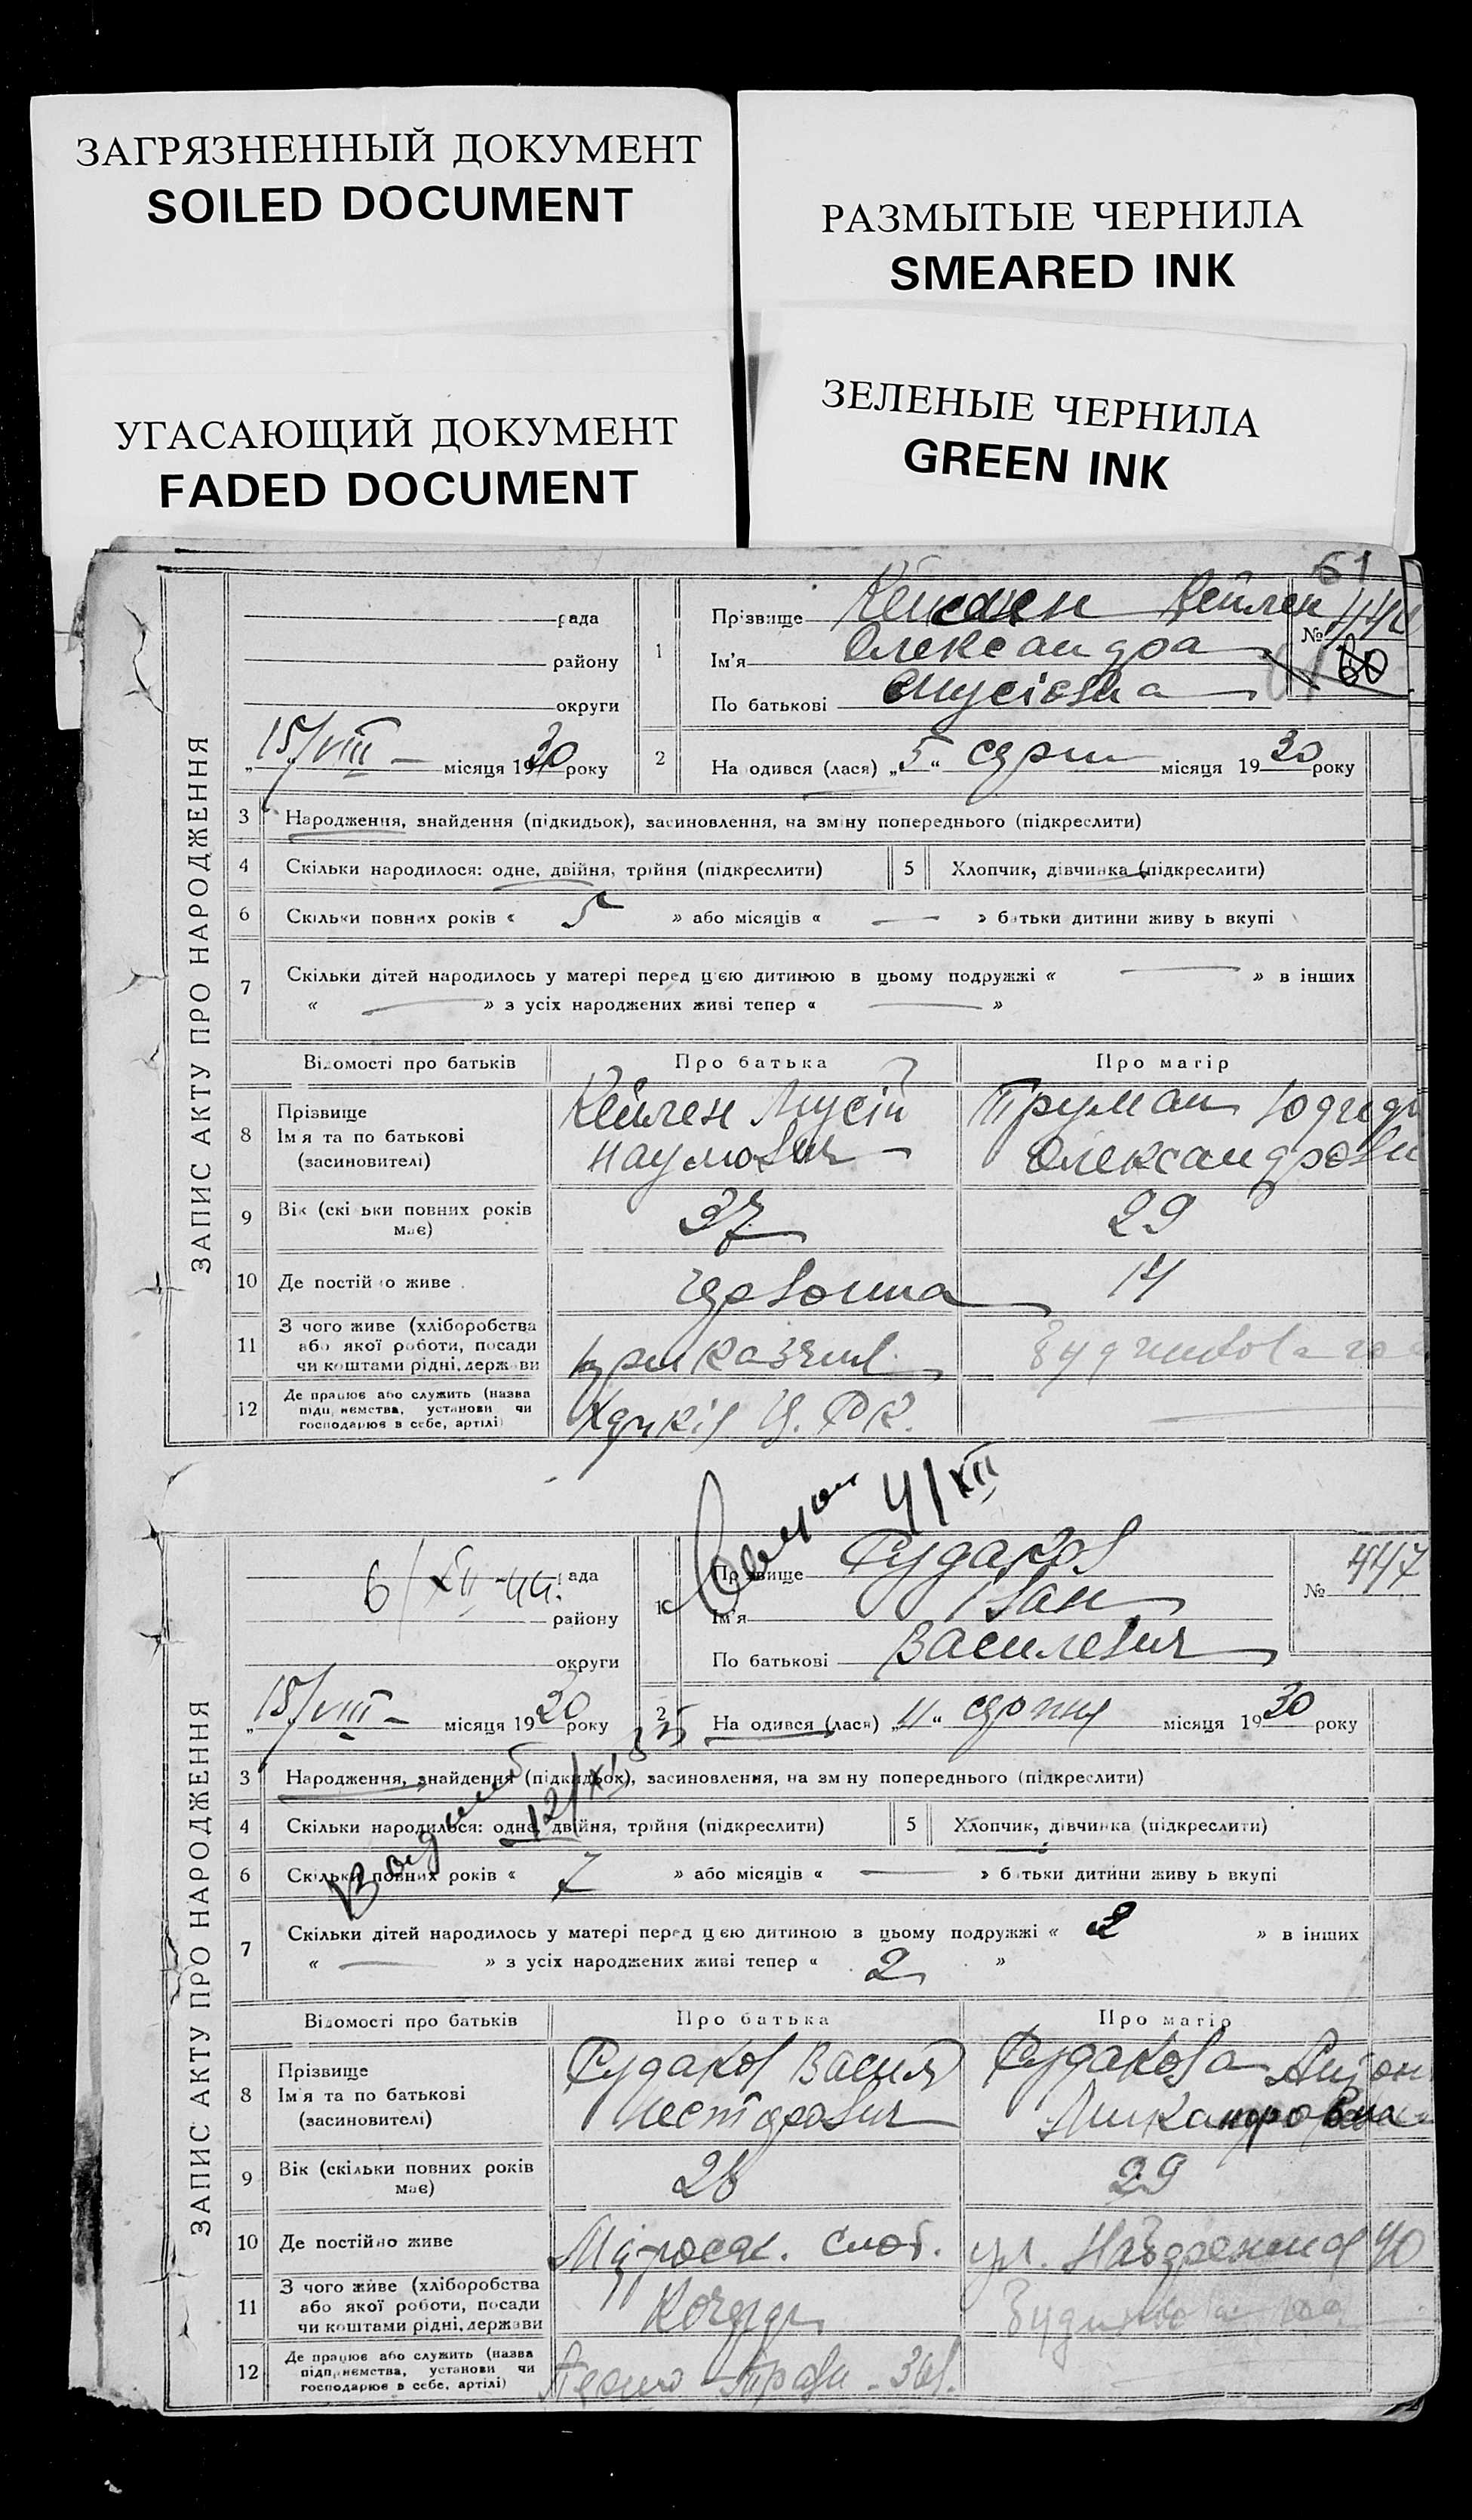 ЗАГРЯЗНЕННЫЙ ДОКУМЕНТ
SOILED DOCUMENT
РАЗМЫТЫЕ ЧЕРНИЛА
SMEARED INK
УГАСАЮЩИЙ ДОКУМЕНТ
FADED DOCUMENT
ЗЕЛЕНЫЕ ЧЕРНИЛА
GREEN INK
61
ЗАПИС АКТУ ПРО НАРОДЖЕННЯ
рада
району
округи
15/VIII - місяця 1930 року
1
Прізвище Кейлен
Ім'я Олександра
По батькові Мусієвна
№
60
2 На одився (лася) „5“ серп місяця 1930 року
3 Народження, знайдення (підкидьок), засиновлення, на зміну попереднього (підкреслити)
4 Скільки народилося: одне, двійня, трійня (підкреслити)
5 Хлопчик, дівчинка (підкреслити)
6 Скільки повних років « 5 » або місяців « — » батьки дитини живу ь вкупі
7 Скільки дітей народилось у матері перед цією дитиною в цьому подружжі « — » в інших
« — » з усіх народжених живі тепер « — »
Відомості про батьків Про батька Про матір
8 Прізвище Ім'я та по батькові (засиновителі)
Кейлен Мусій Наумович
Труман
Олександровн
9 Вік (скі ьки повних років має) 37 29
10 Де постійно живе 14
11 З чого живе (хліборобства або якої роботи, посади чи коштами рідні, держави
12 Де працює або служить (назва підприємства, установи чи господарює в себе, артілі)
4/XII
ЗАПИС АКТУ ПРО НАРОДЖЕННЯ
6/XII-44.
рада
району
округи
15/VIII - місяця 1930 року
1
Прізвище Рудаков
Ім'я Іван
По батькові Василевич
№ 447
2 На одився (лася) „11“ серпня місяця 1930 року
3 Народження, знайдення (підкидьок), засиновлення, на зм ну попереднього (підкреслити)
12/XI
4 Скільки народилося: одне, двійня, трійня (підкреслити)
5 Хлопчик, дівчинка (підкреслити)
6 Скільки повних років « 7 » або місяців « — » батьки дитини живу ь вкупі
7 Скільки дітей народилось у матері перед цією дитиною в цьому подружжі « 2 » в інших
« — » з усіх народжених живі тепер « 2 »
Відомості про батьків Про батька Про матір
8 Прізвище Ім'я та по батькові (засиновителі)
Рудаков Василь Несторович
Рудакова Антон
Никандровна
9 Вік (скільки повних років має) 28 29
10 Де постійно живе слоб. ул. 40
11 З чого живе (хліборобства або якої роботи, посади чи коштами рідні, держави
Кочегар
12 Де працює або служить (назва підприємства, установи чи господарює в себе, артілі)